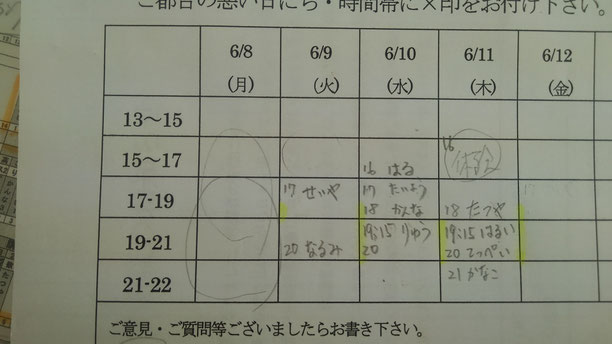 ご都合の悪い日にち・時間帯に×印をお付け下さい。
6/8 6/9 6/10 6/11 6/12
(月) (火) (水) (木) (金)
13～15
15～17
16 はる
16 体験
17-19
17 せいや
17 たいよう
18 かんな
18 たつや
19-21
19:15 りゅう
19:15 はるい
20 なるみ
20
20 てっぺい
21-22
21 かなこ
ご意見・ご質問等ございましたらお書き下さい。